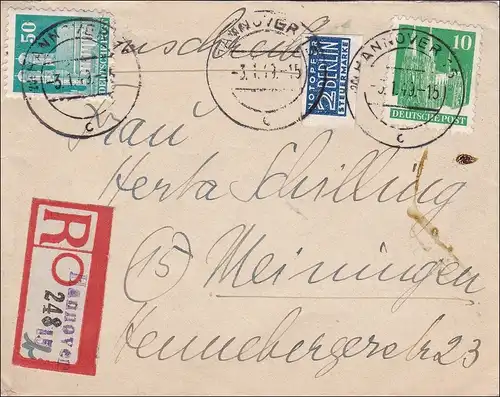 50
DEUTSCHE POST
HANNOVER 5
-3.1.49.-15
c
Einschreiben
HANNOVER 5
-3.1.49.-15
c
NOTOPFER
2 BERLIN
STEUERMARKE
HANNOVER 5
-3.1.49.-15
c
10
DEUTSCHE POST
Frau
Herta Schilling
(15) Meiningen
Hennebergerstr 23
R
Hannover
248